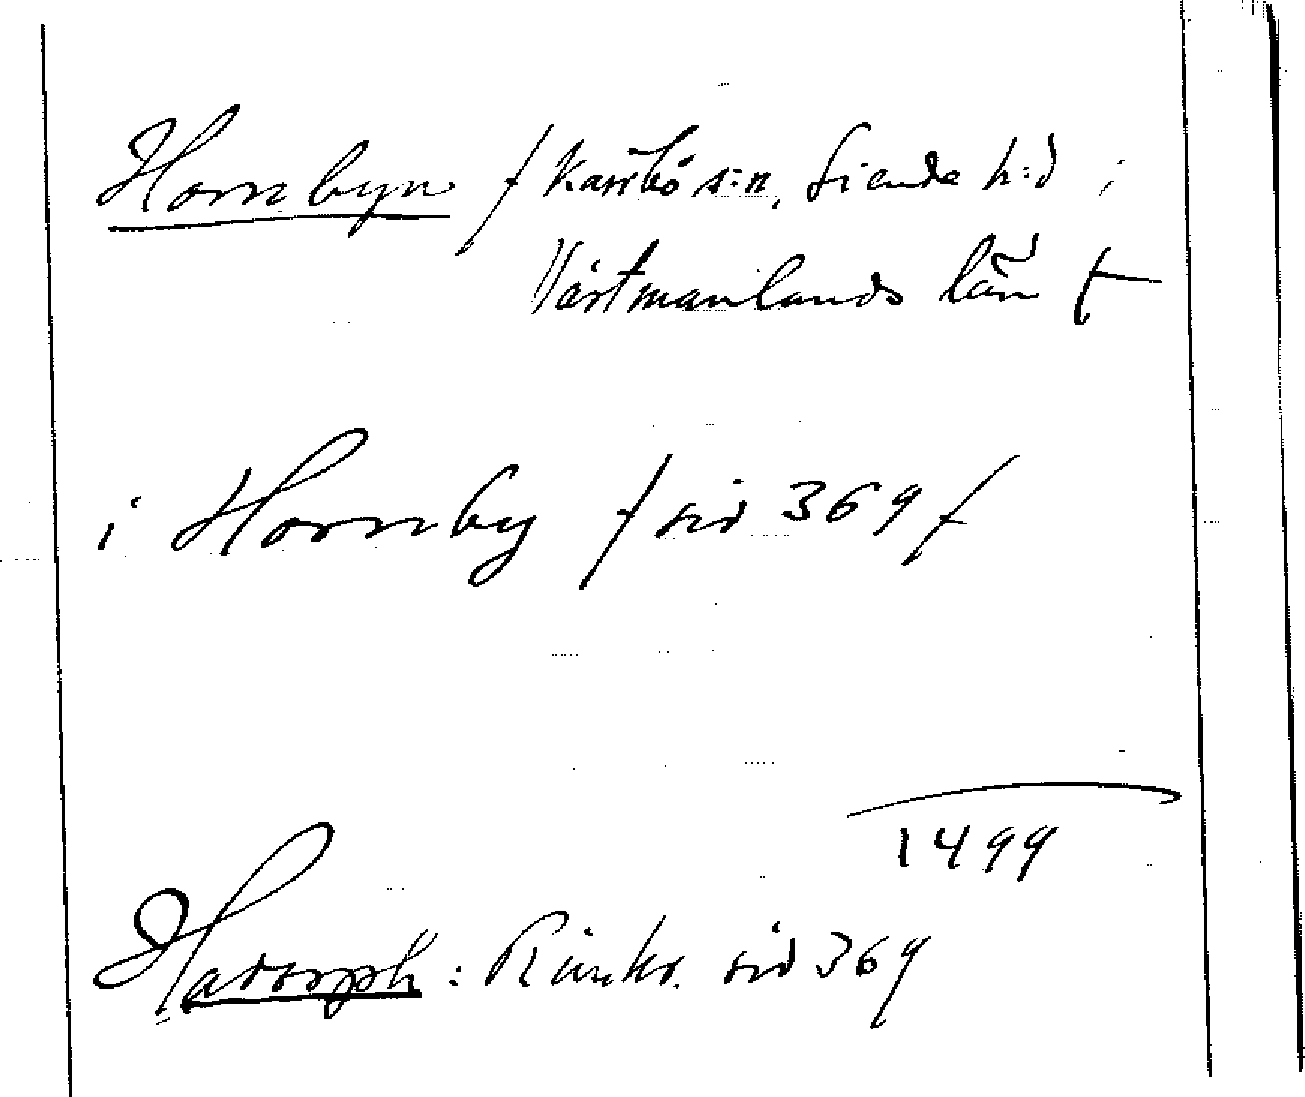 Hornbyn / Kärrbo s:n, Siende h:d i
Västmanlands län /
i Hornby / sid 369 /
1499
Hadorph: Rimkr. sid 369